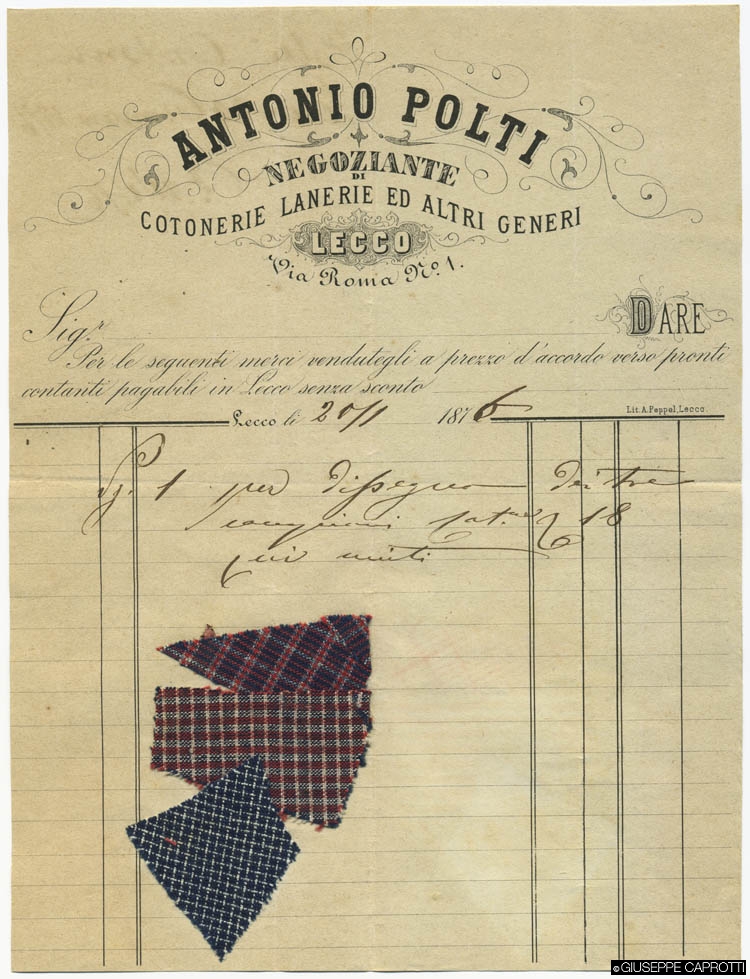 ANTONIO POLTI
NEGOZIANTE
DI
COTONERIE LANERIE ED ALTRI GENERI
LECCO
Via Roma No. 1.
DARE
Sigr.
Per le seguenti merci vendutegli a prezzo d'accordo verso pronti
contanti pagabili in Lecco senza sconto
Lit. A. Peppel, Lecco.
Lecco li 20/1 1876
1 per dissegno dei tre
18
qui uniti
©GIUSEPPE CAPROTTI